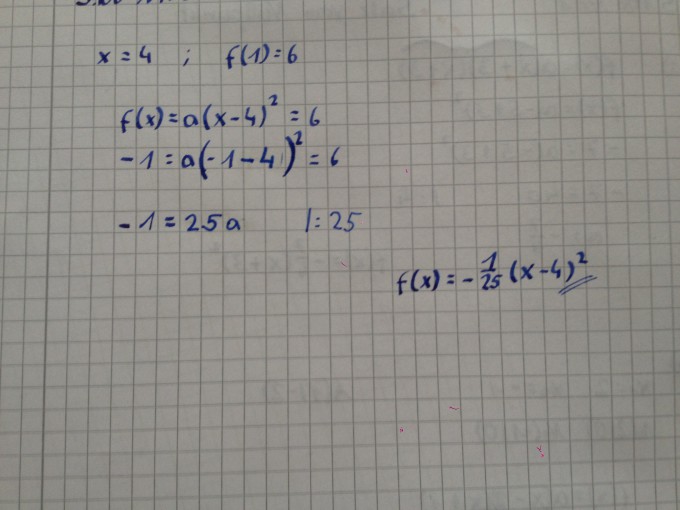 x = 4 ; f(1) = 6
f(x) = a(x-4)² = 6
-1 = a(-1-4)² = 6
-1 = 25a |: 25
f(x) = -1/25 (x-4)²